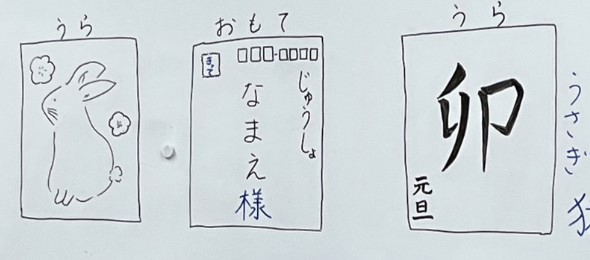 うら
おもて
きって
じゅうしょ
なまえ様
うら
卯
元旦
うさぎ